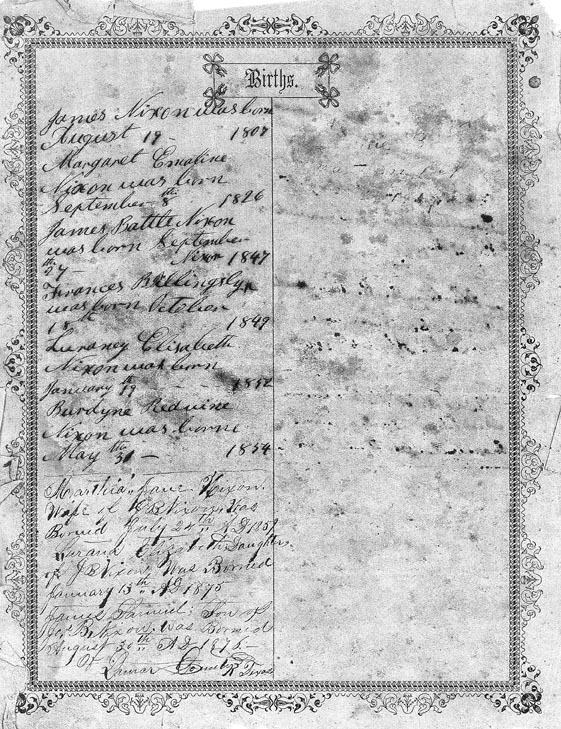 Births.
James Nixon was born
August 19 - 1807
Margaret Emaline
Nixon was born
September 8th 1826
James Battle Nixon
was born September
27th - Nixon 1847
Frances Billingslyn
was born October
18th 1849
Luraney Elisabeth
Nixon was born
January 19th - - 1852
Burdyne Redwine
Nixon was borne
May 31th - 1854
Martha Jane Nixon.
Wife of Nixon Was
Borned July 24th AD 185
Elizabeth Daughter
of J B Nixon Was Borned
January 13th AD 1875
James Samuel Son of
J B Nixon was Borned
August 30th AD 1876 -
Lamar Texas